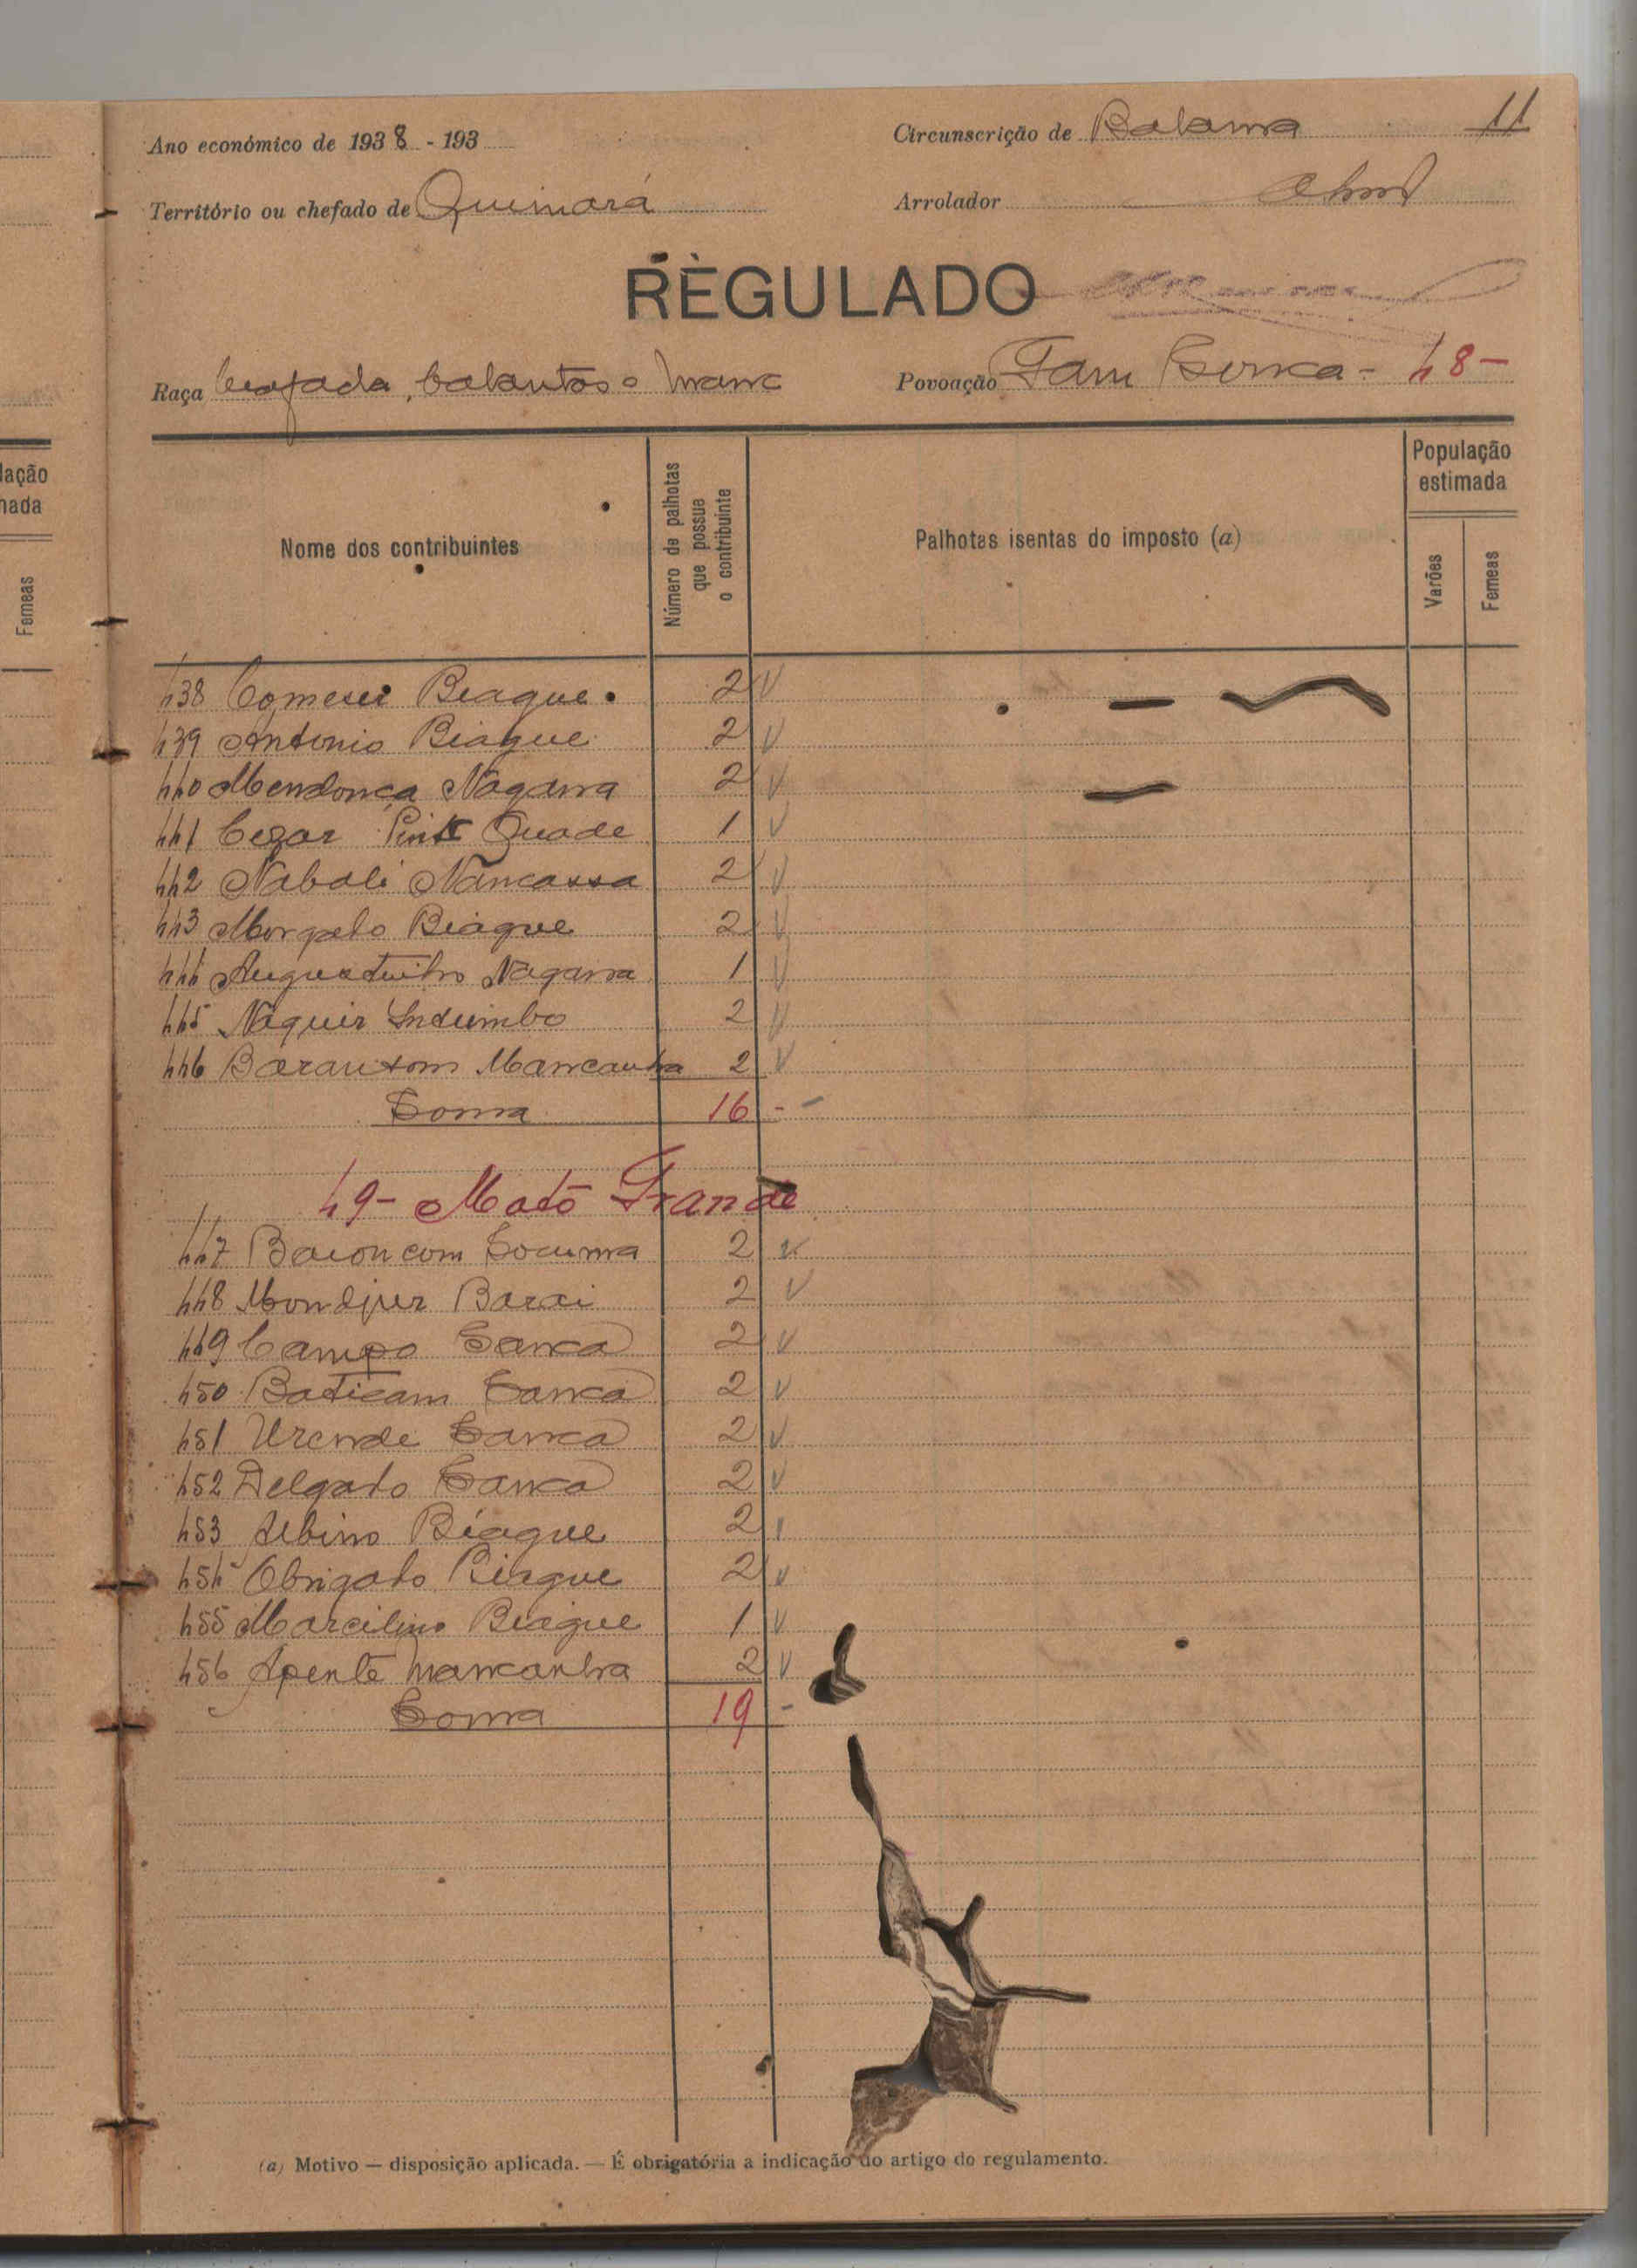 11
Ano económico de 1938 - 193
Circunscrição de Bolama
Território ou chefado de Quinará
Arrolador
REGULADO
Raça beafada, balantas e manc
Povoação Tam Bonca - 48-
lação
nada
Femeas
Nome dos contribuintes
Número de palhotas que possue o contribuinte
Palhotas isentas do imposto (a)
População estimada
Varões
Femeas
438 Comessi Biague 2
439 Antonio Biague 2
440 Mendonça Nagana 2
441 Cezar Pint Quade 1
442 Nabali Nancassa 2
443 Morgado Biague 2
444 Augustinho Nagana 1
445 Naquir Indumbo 2
446 Barantom Mancanha 2
Soma 16 -
49- Mato Grande
447 Baioncom Socuma 2
448 Mondjur Barai 2
449 Campo Sanca 2
450 Baticam Sanca 2
451 Urende Sanca 2
452 Delgado Sanca 2
453 Albino Biague 2
454 Obrigado Biague 2
455 Marcilino Biague 1
456 Apente Mancanha 2
Soma 19 -
(a) Motivo — disposição aplicada. — É obrigatória a indicação do artigo do regulamento.